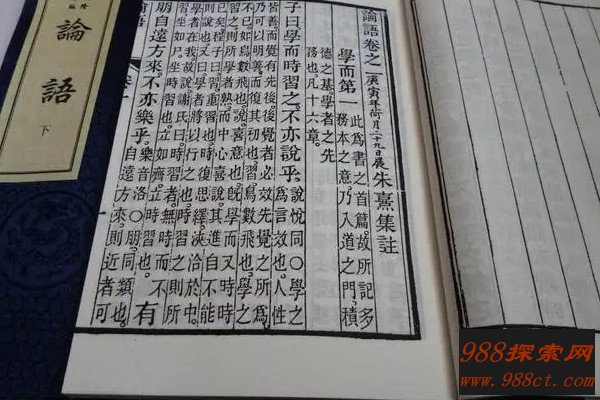 論語卷之一 庚寅年荷月二十九日展 朱熹集註
學而第一 此為書之首篇。故所記多
務本之意。乃入道之門。積
德之基。學者之先
務也。凡十六章。
子曰。學而時習之。不亦說乎。 說悅同○學之
為言效也。人性
皆善。而覺有先後。後覺者必效先覺之所為。
乃可以明善而復其初也。習。鳥數飛也。學之
不已。如鳥數飛也。說。喜意也。既學而又時時
習之。則所學者熟而中心喜說。其進自不能
已矣。程子曰。習。重習也。時復思繹。浹洽於中。
則說也。又曰。學者將以行之也。時習之。則所
學者在我。故說。謝氏曰。時習者。無時而不
習。坐如尸。坐時習也。立如齊。立時習也。 有
朋自遠方來。不亦樂乎。 樂音洛○朋。同類也。
自遠方來。則近者可
論語
下
988探索网
www.988ct.com